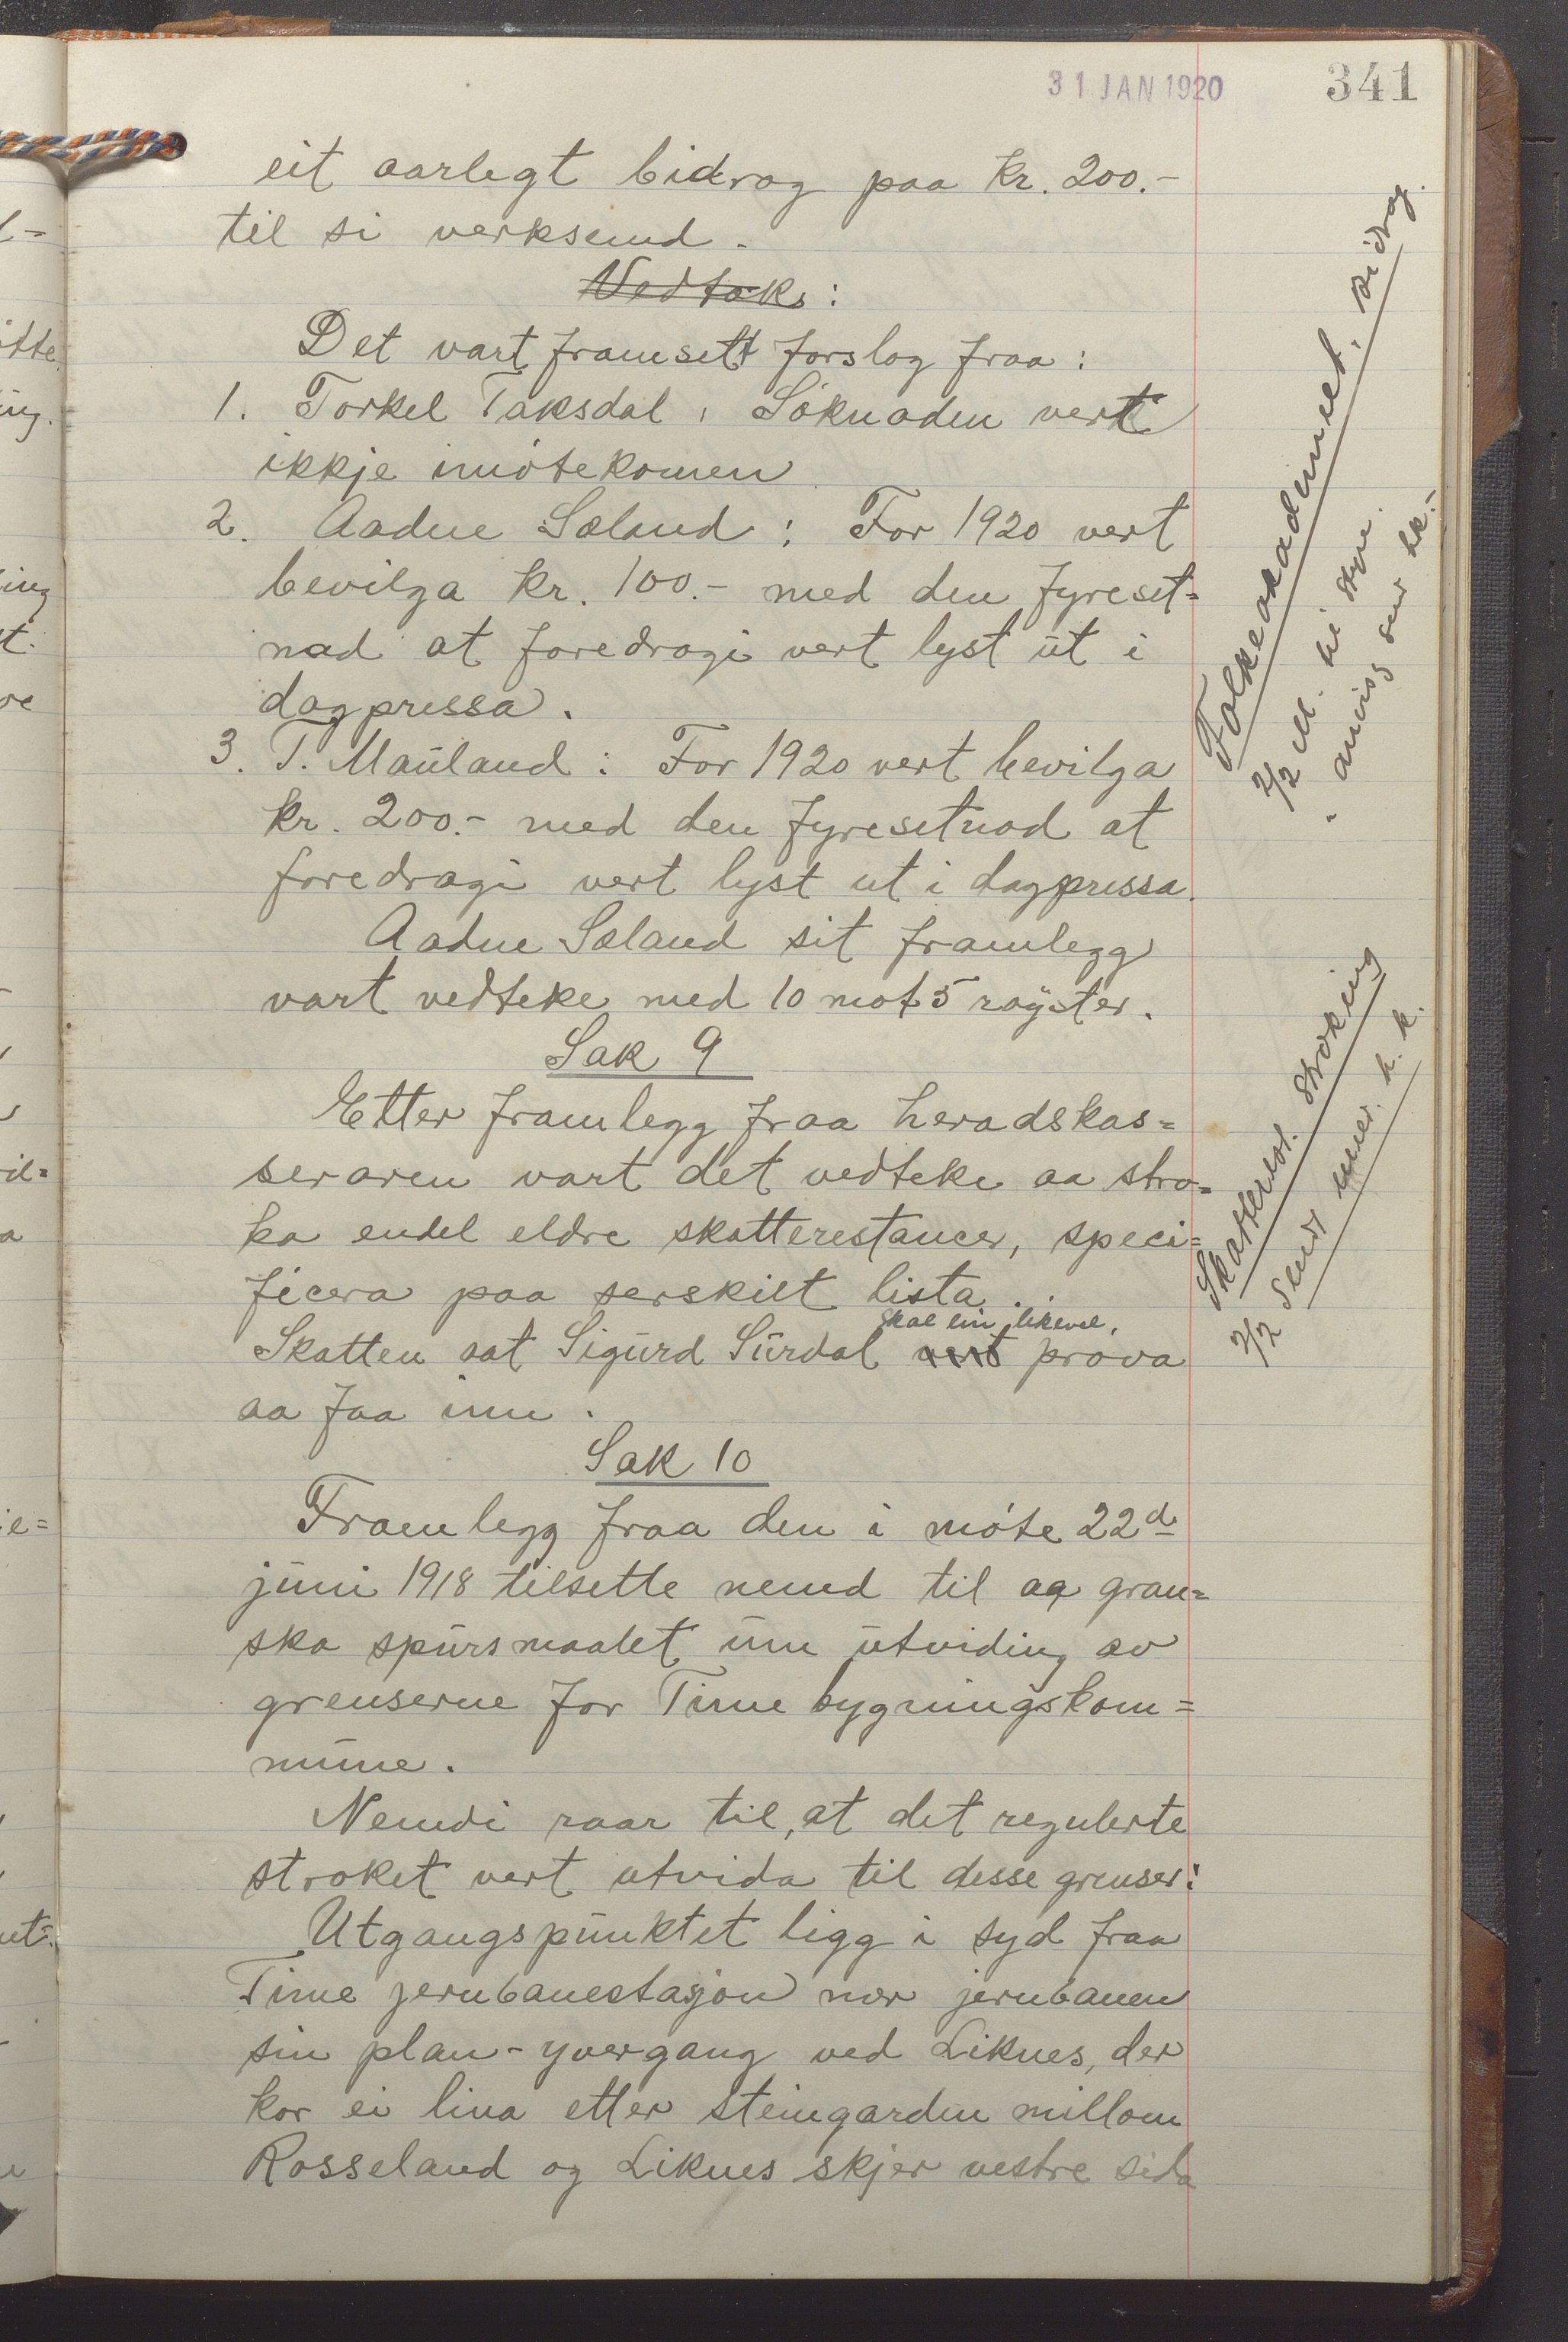 31 JAN 1920
341
eit aarlegt bidrag paa kr. 200.-
til si verksemd.
Vedtak:
Det vart framsett forslag fraa:
1. Torkel Taksdal: Søknaden vert
ikkje imøtekomen
2. Aadne Sæland: For 1920 vert
bevilga kr. 100.- med den fyreset=
nad at foredragi vert lyst ut i
dagpressa.
3. T. Mauland: For 1920 vert bevilga
kr. 200.- med den fyresetnad at
foredragi vert lyst ut i dagpressa.
Aadne Sæland sit framlegg
vart vedteke med 10 mot 5 røyster.
Sak 9
Etter framlegg fraa heradskas=
seraren vart det vedteke aa stro=
ka endel eldre skatterestancer, speci=
ficera paa serskilt lista.
skal ein likevel.
Skatten aat Sigurd Surdal vert prøva
aa faa inn.
Sak 10
Framlegg fraa den i møte 22d
juni 1918 tilsette nemd til aa gran=
ska spursmaalet um utviding av
grenserne for Time bygningskom=
mune.
Nemdi raar til, at det regulerte
strøket vert utvida til desse grenser:
Utgangspunktet ligg i syd fraa
Time jernbanestasjon nær jernbanen
sin plan-yvergang ved Liknes, der
kor ei lina etter steingarden millom
Rosseland og Liknes skjer vestre sida
Folkeakademiet, bidrag.
2/2 M. til styre.
" anvisg. send hk.-
Skatterest. strøking
2/2 Sendt h. k.